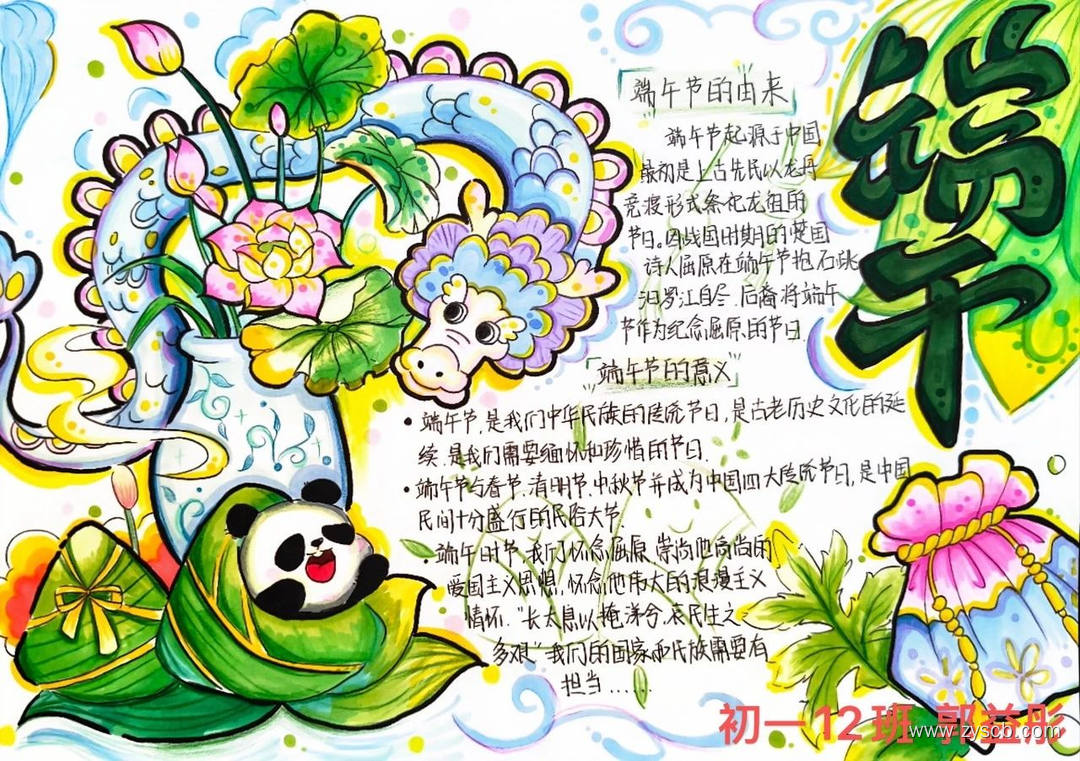 端午
端午节的由来
端午节起源于中国
最初是上古先民以龙舟
竞渡形式祭祀龙祖的
节日,因战国时期的楚国
诗人屈原在端午节抱石跳
汨罗江自尽,后裔将端午
节作为纪念屈原的节日
端午节的意义
• 端午节,是我们中华民族的传统节日,是古老历史文化的延
续,是我们需要缅怀和珍惜的节日.
• 端午节与春节、清明节、中秋节并成为中国四大传统节日,是中国
民间十分盛行的民俗大节.
• 端午时节,我们怀念屈原,崇尚他高尚的
爱国主义思想,怀念他伟大的浪漫主义
情怀."长太息以掩涕兮,哀民生之
多艰"我们的国家和民族需要有
担当……
初一12班 郭益彤
www.zyscb.com